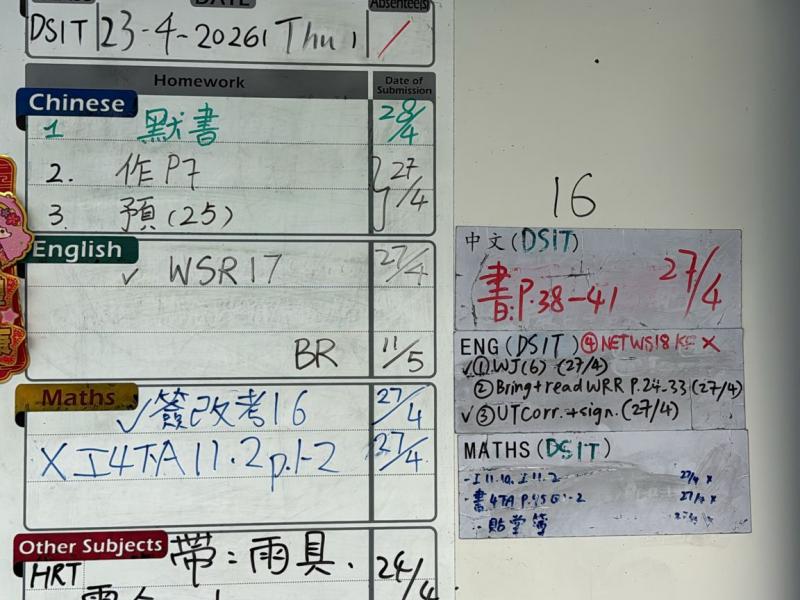 DATE
Absentee(s)
DSIT 23-4-2026 Thu /
Homework
Date of Submission
Chinese
1 默書 28/4
2. 作P7 27/4
3. 預(25)
English
✓ WSR17 27/4
BR 11/5
Maths
✓簽改考16 27/4
X I4TA 11.2 p.1-2 27/4
Other Subjects
HRT 帶：雨具. 24/4
16
中文(DSIT)
書P.38-41 27/4
ENG (DSIT) ④NETWS18 KF X
✓①WJ(6) (27/4)
②Bring+read WRR P.24-33 (27/4)
✓③UTCorr.+sign. (27/4)
MATHS (DSIT)
27/4 X
-書4TA P.45 27/4 X
-貼堂簿